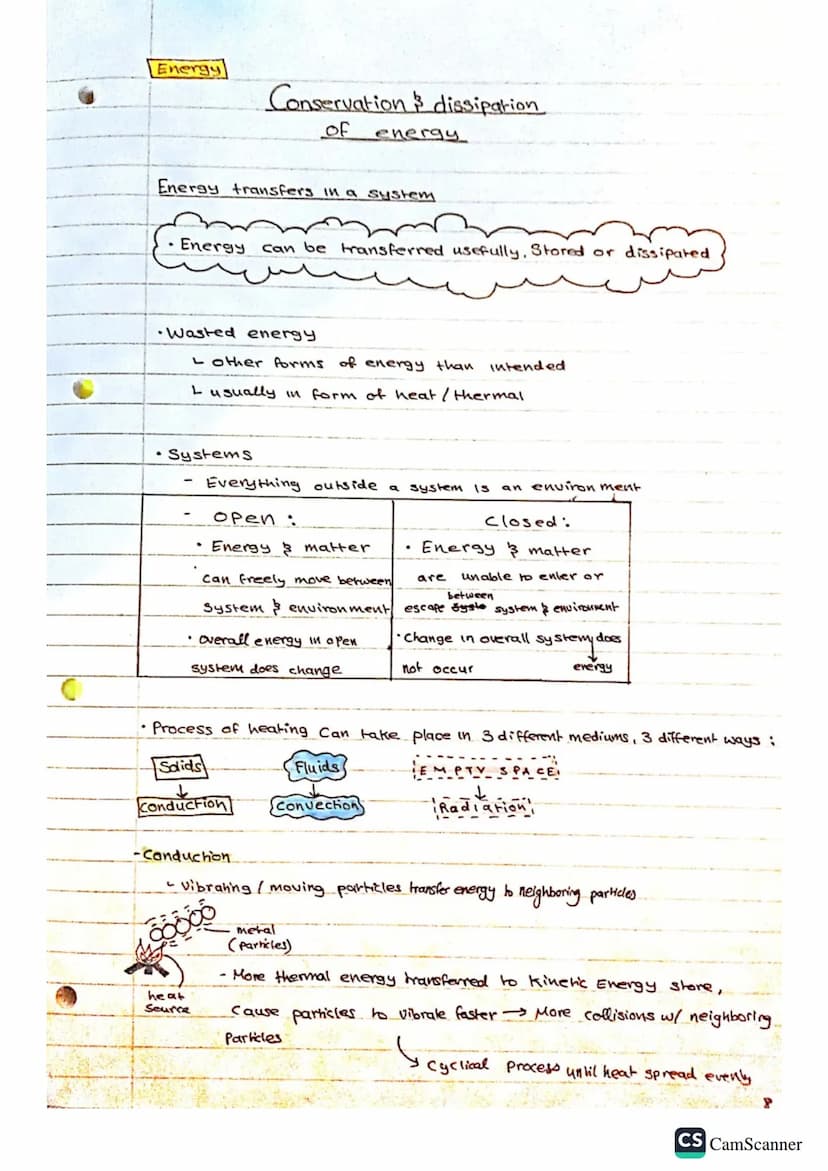 Energy
Conservation & dissipation
of energy
Energy transfers in a system
• Energy can be transferred usefully, Stored or dissipated
• Wasted energy
└ other forms of energy than intended
└ usually in form of heat / thermal
• Systems
- Everything outside a system is an environment
- Open :
• Energy & matter
can freely move between
System & environment
• overall energy in open
system does change
Closed :
• Energy & matter
are unable to enter or
between
escape system & environment
• Change in overall system does
energy
not occur
• Process of heating can take place in 3 different mediums, 3 different ways :
Solids
Fluids
EMPTY SPACE
Conduction
Convection
Radiation
- Conduction
└ Vibrating / moving particles transfer energy to neighboring particles
metal
(particles)
heat
source
- More thermal energy transferred to Kinetic Energy store,
Cause particles to vibrate faster → More collisions w/ neighboring
Particles
Cyclical Process until heat spread evenly
CS CamScanner